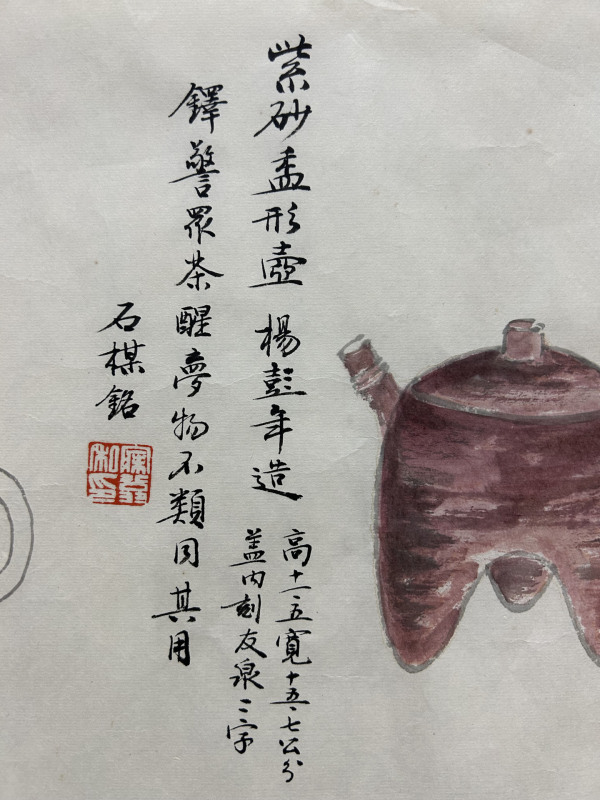 紫砂盉形壺 楊彭年造
高十一·五寬十五·七公分
蓋内刻友泉二字
鐸警眾茶醒夢物不類同其用
石楳銘